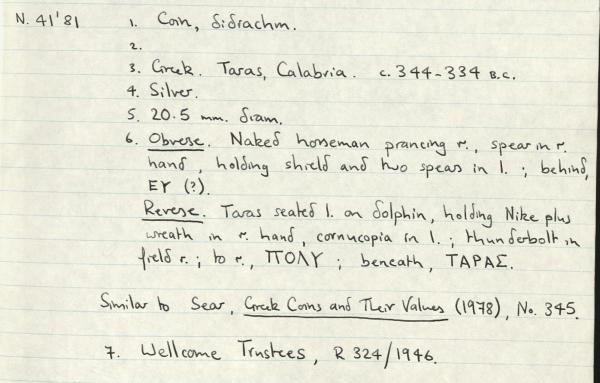 N. 41'81 1. Coin, didrachm.
2.
3. Greek. Taras, Calabria. c. 344-334 B.C.
4. Silver.
5. 20.5 mm. diam.
6. Obverse. Naked horseman prancing r., spear in r.
hand, holding shield and two spears in l. ; behind,
EY (?).
Reverse. Taras seated l. on dolphin, holding Nike plus
wreath in r. hand, cornucopia in l. ; thunderbolt in
field r. ; to r., ΠΟΛΥ ; beneath, ΤΑΡΑΣ.
Similar to Sear, Greek Coins and Their Values (1978), No. 345.
7. Wellcome Trustees, R 324/1946.